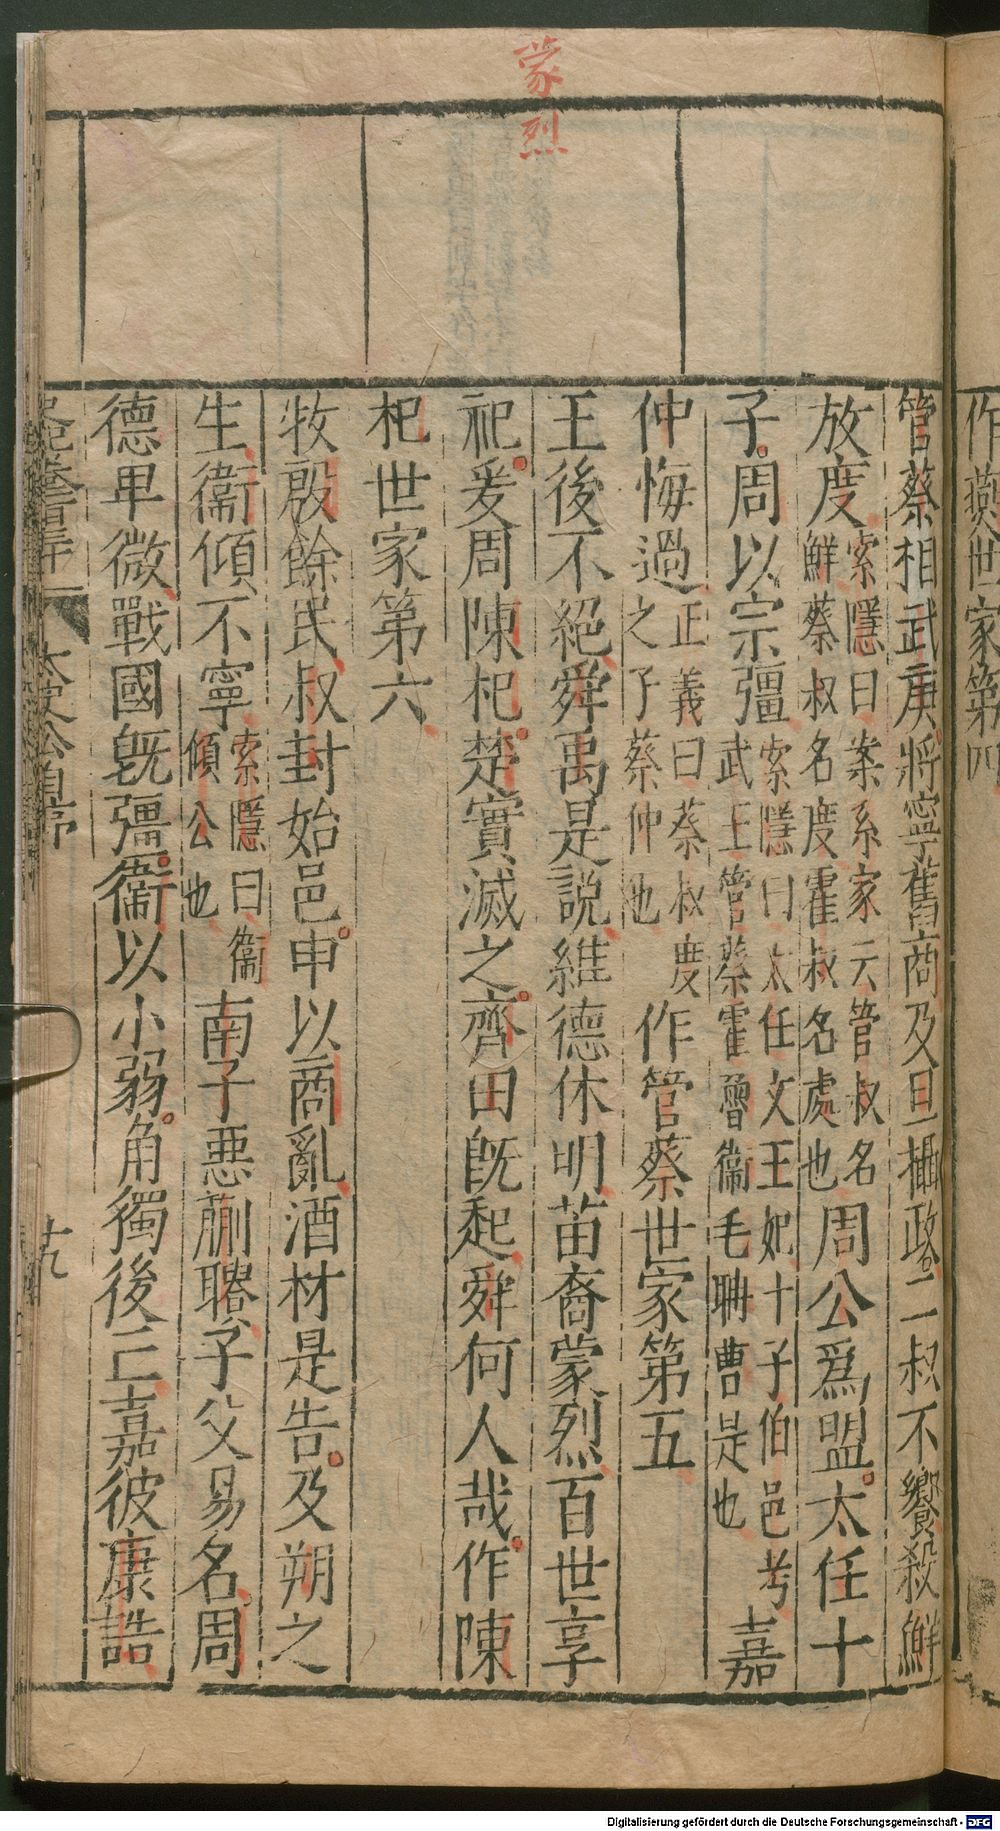 蒙烈
作燕世家第四
管蔡相武庚將寧舊商及旦攝政二叔不饗殺鮮
放度索隱曰案系家云管叔名鮮蔡叔名度霍叔名處也周公爲盟太任十
子周以宗彊索隱曰太任文王妃十子伯邑考武王管蔡霍魯衞毛聃曹是也嘉
仲悔過正義曰蔡叔度之子蔡仲也作管蔡世家第五
王後不絕舜禹是說維德休明苗裔蒙烈百世享
祀爰周陳杞楚實滅之齊田既起舜何人哉作陳
杞世家第六
牧殷餘民叔封始邑申以商亂酒材是告及朔之
生衞傾不寧索隱曰衞傾公也南子惡蒯聵子父易名周
德卑微戰國既彊衞以小弱角獨後亡嘉彼康誥
太史公自序
十九
Digitalisierung gefördert durch die Deutsche Forschungsgemeinschaft - DFG